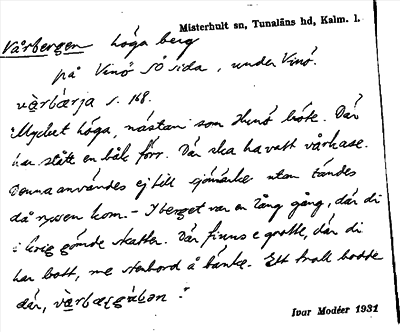 Misterhult sn, Tunaläns hd, Kalm. l.
Vårbergen höga berg
på Vinö SÖ sida, under Vinö.
s. 168.
"Mycket höga, nästan som Hunö böte. Där
har stått en båk förr. Där ska ha vatt vårkase.
Denna användes ej till sjömärke utan tändes
då ryssen kom. - I berget var en lång gång, där di
i krig gömde skatter. Där finns e grotte, där di
har bott, me stenbord å bänke. Ett troll bodde
där,
Ivar Modéer 1931